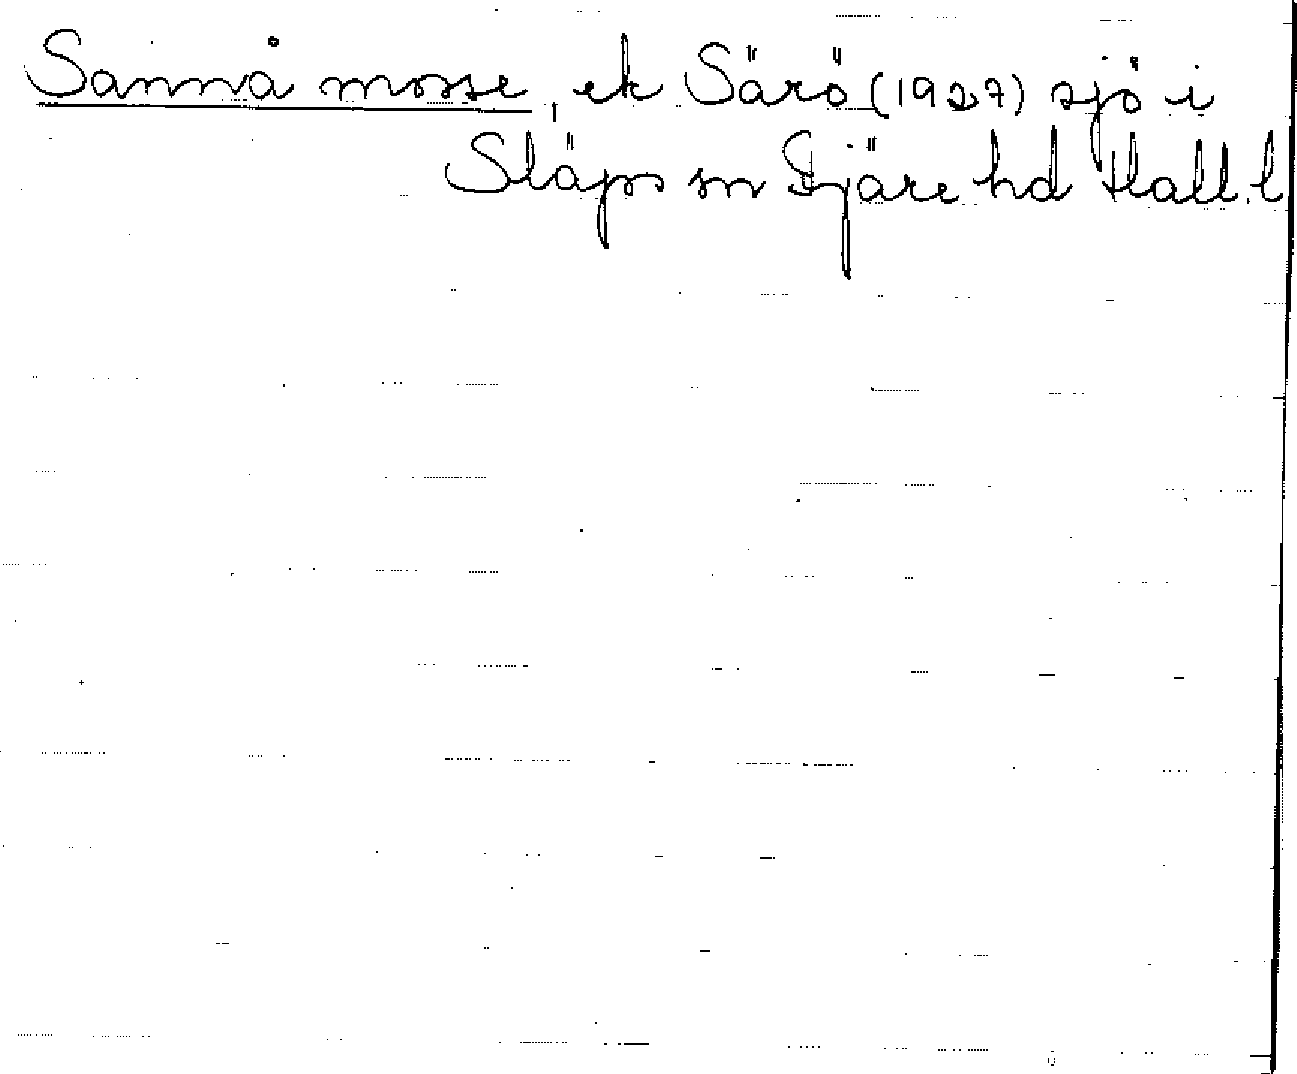 Sannå mosse, ek Särö (1927) sjö i
Släps sn Fjäre hd Hall. l